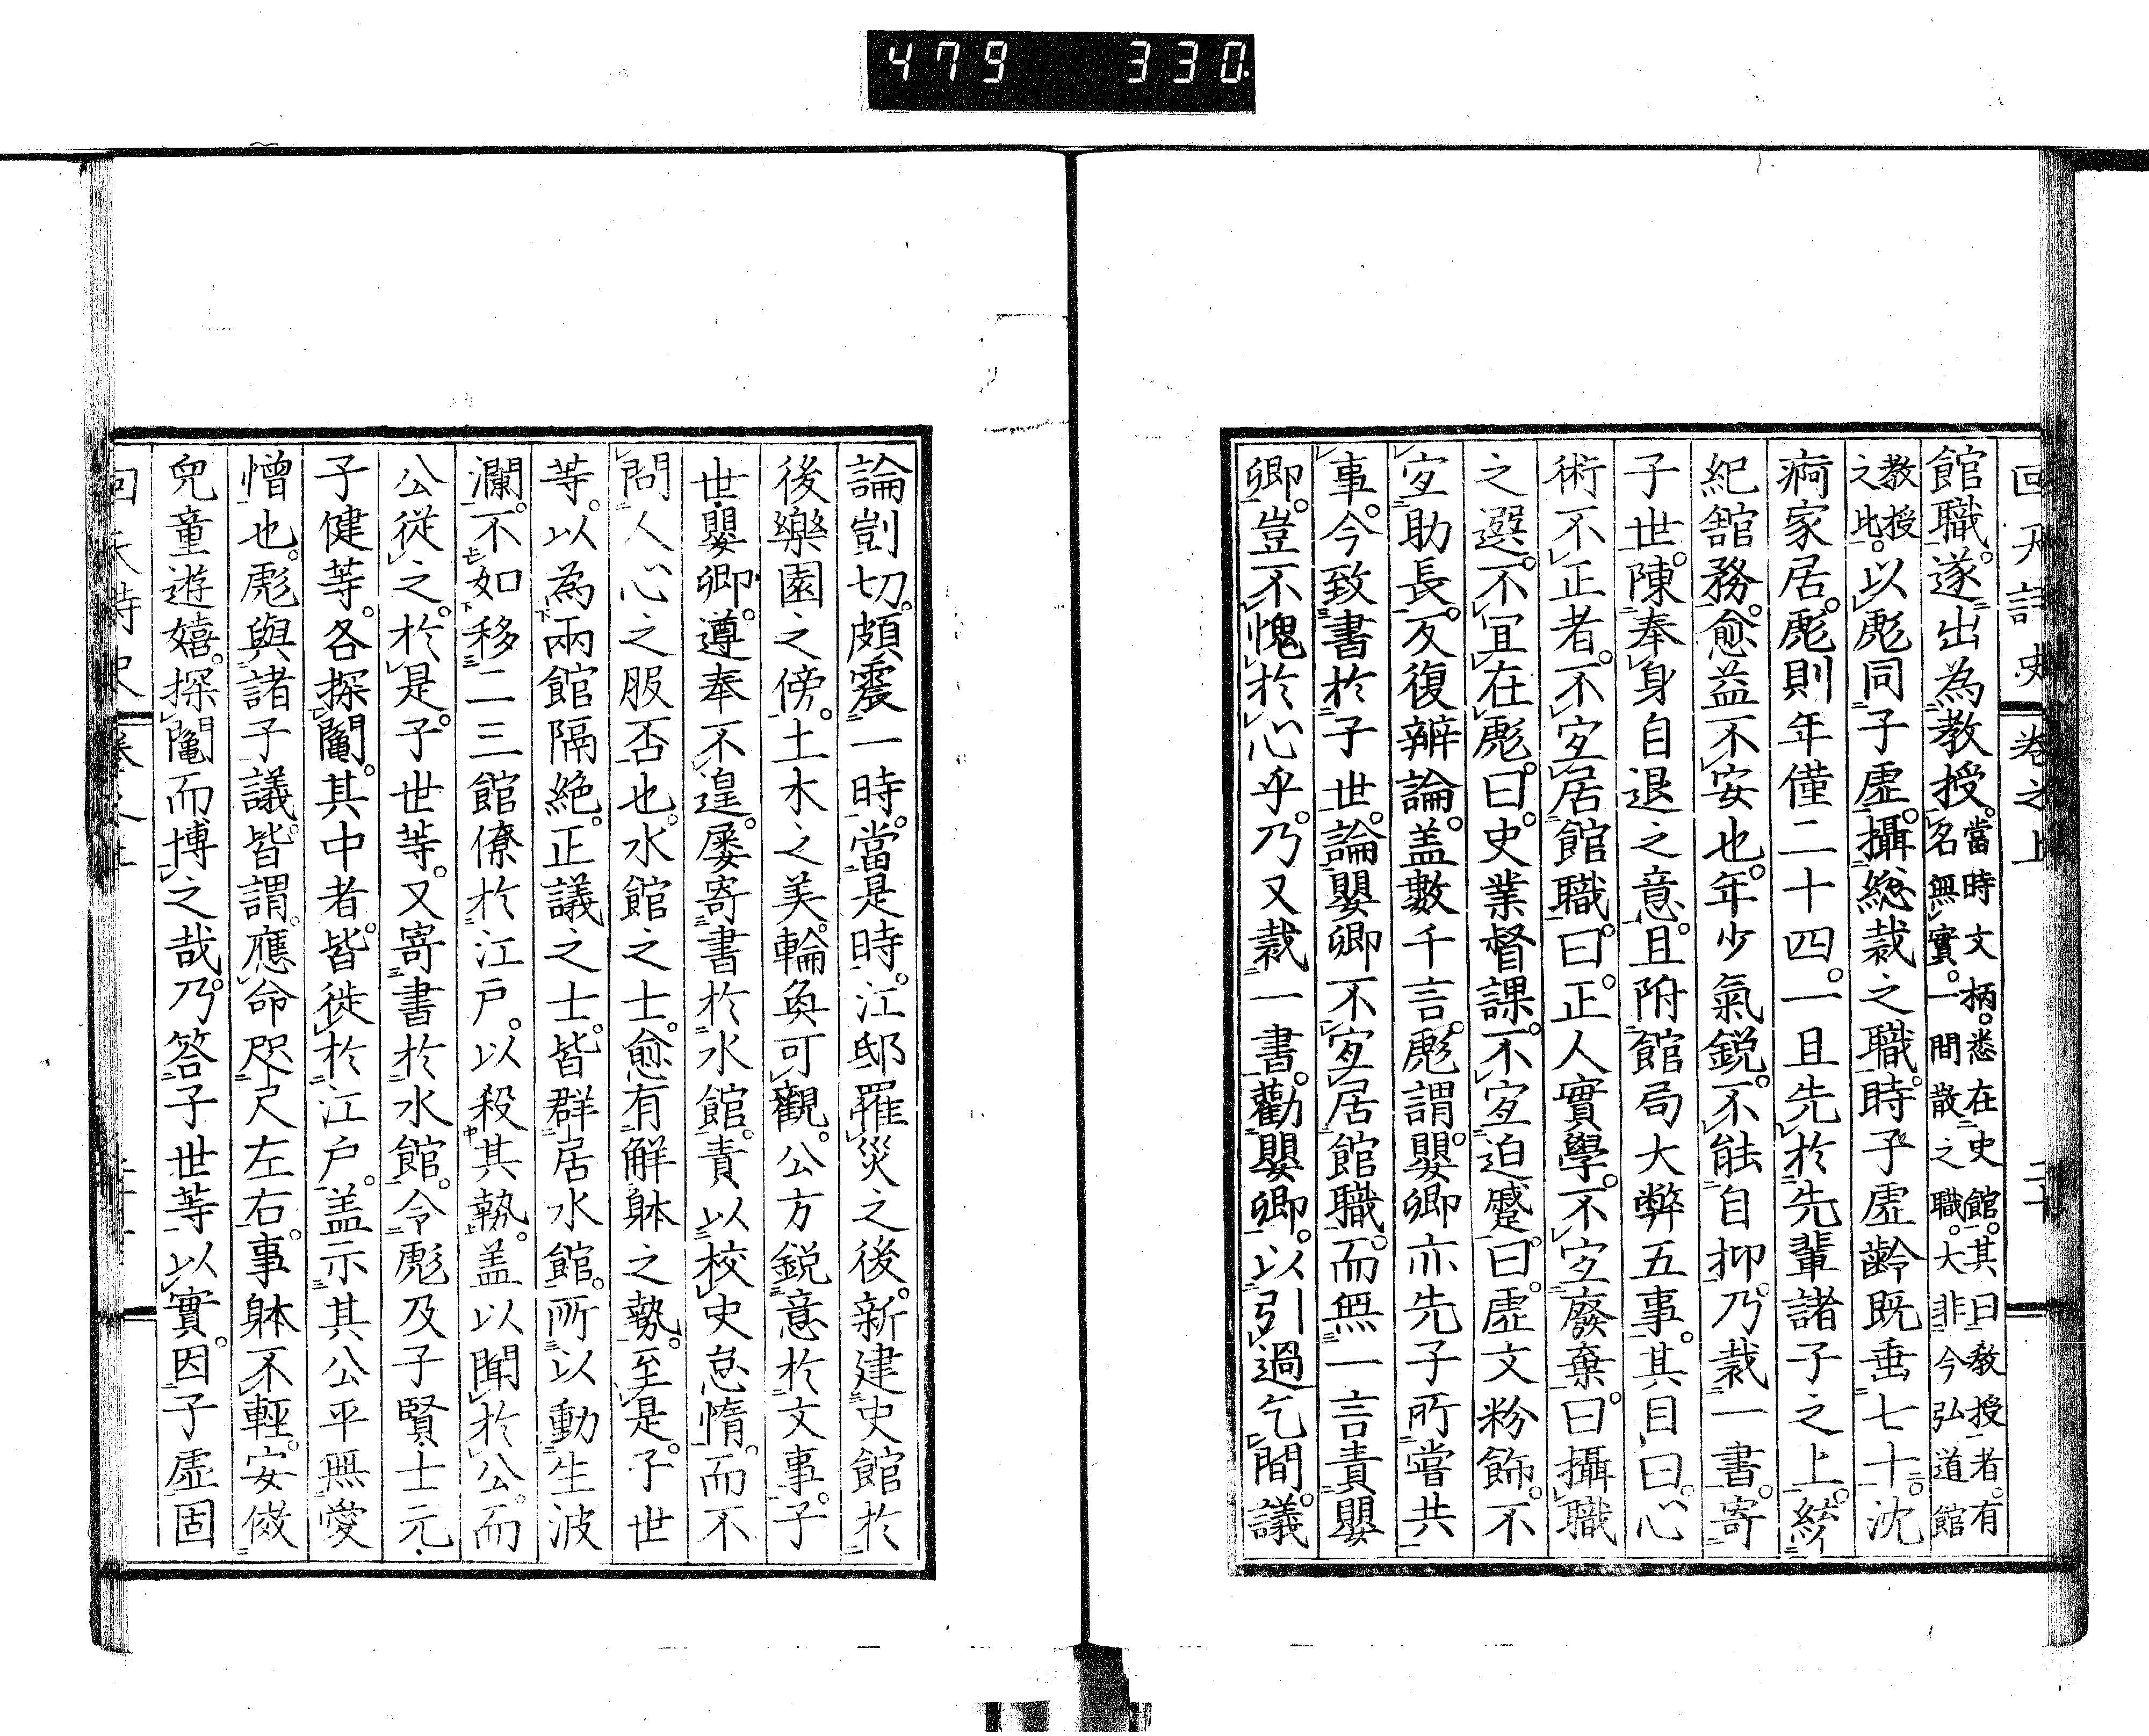 479 330
回天詩史 卷之上
館職。遂出為教授。當時文柄。悉在史館。其曰教授者。有名無實。一間散之職。大非今弘道館
教授之比。以彪同子虛。攝總裁之職。時子虛齡既垂七十。沈
痾家居。彪則年僅二十四。一旦先於先輩諸子之上。統
紀舘務。愈益不安也。年少氣銳。不能自抑。乃裁一書。寄
子世。陳奉身自退之意。且附館局大弊五事。其目曰。心
術不正者。不宜居館職。曰。正人實學。不宜廢棄。曰。攝職
之選。不宜在彪。曰。史業督課。不宜迫蹙。曰。虛文粉飾。不
宜助長。反復辨論。盖數千言。彪謂。嬰卿亦先子所嘗共
事。今致書於子世。論嬰卿不宜居館職。而無一言責嬰
卿。豈不愧於心乎。乃又裁一書。勸嬰卿。以引過乞間。議
論剴切。頗震一時。當是時。江邸罹災之後。新建史館於
後樂園之傍。土木之美。輪奐可觀。公方銳意於文事。子
世嬰卿。遵奉不遑。屢寄書於水館。責以校史怠惰。而不
問人心之服否也。水館之士。愈有解躰之勢。至是。子世
等。以為兩館隔絶。正議之士。皆群居水館。所以動生波
瀾。不如移二三館僚於江戸。以殺其勢。盖以聞於公。而
公從之。於是。子世等。又寄書於水館。令彪及子賢士元
子健等。各探鬮。其中者。皆徙於江戸。盖示其公平無愛
憎也。彪與諸子議。皆謂。應命咫尺左右。事躰不輕。安傚
兒童遊嬉。探鬮而博之哉。乃答子世等以實。因子虛固
回天詩史 卷之上